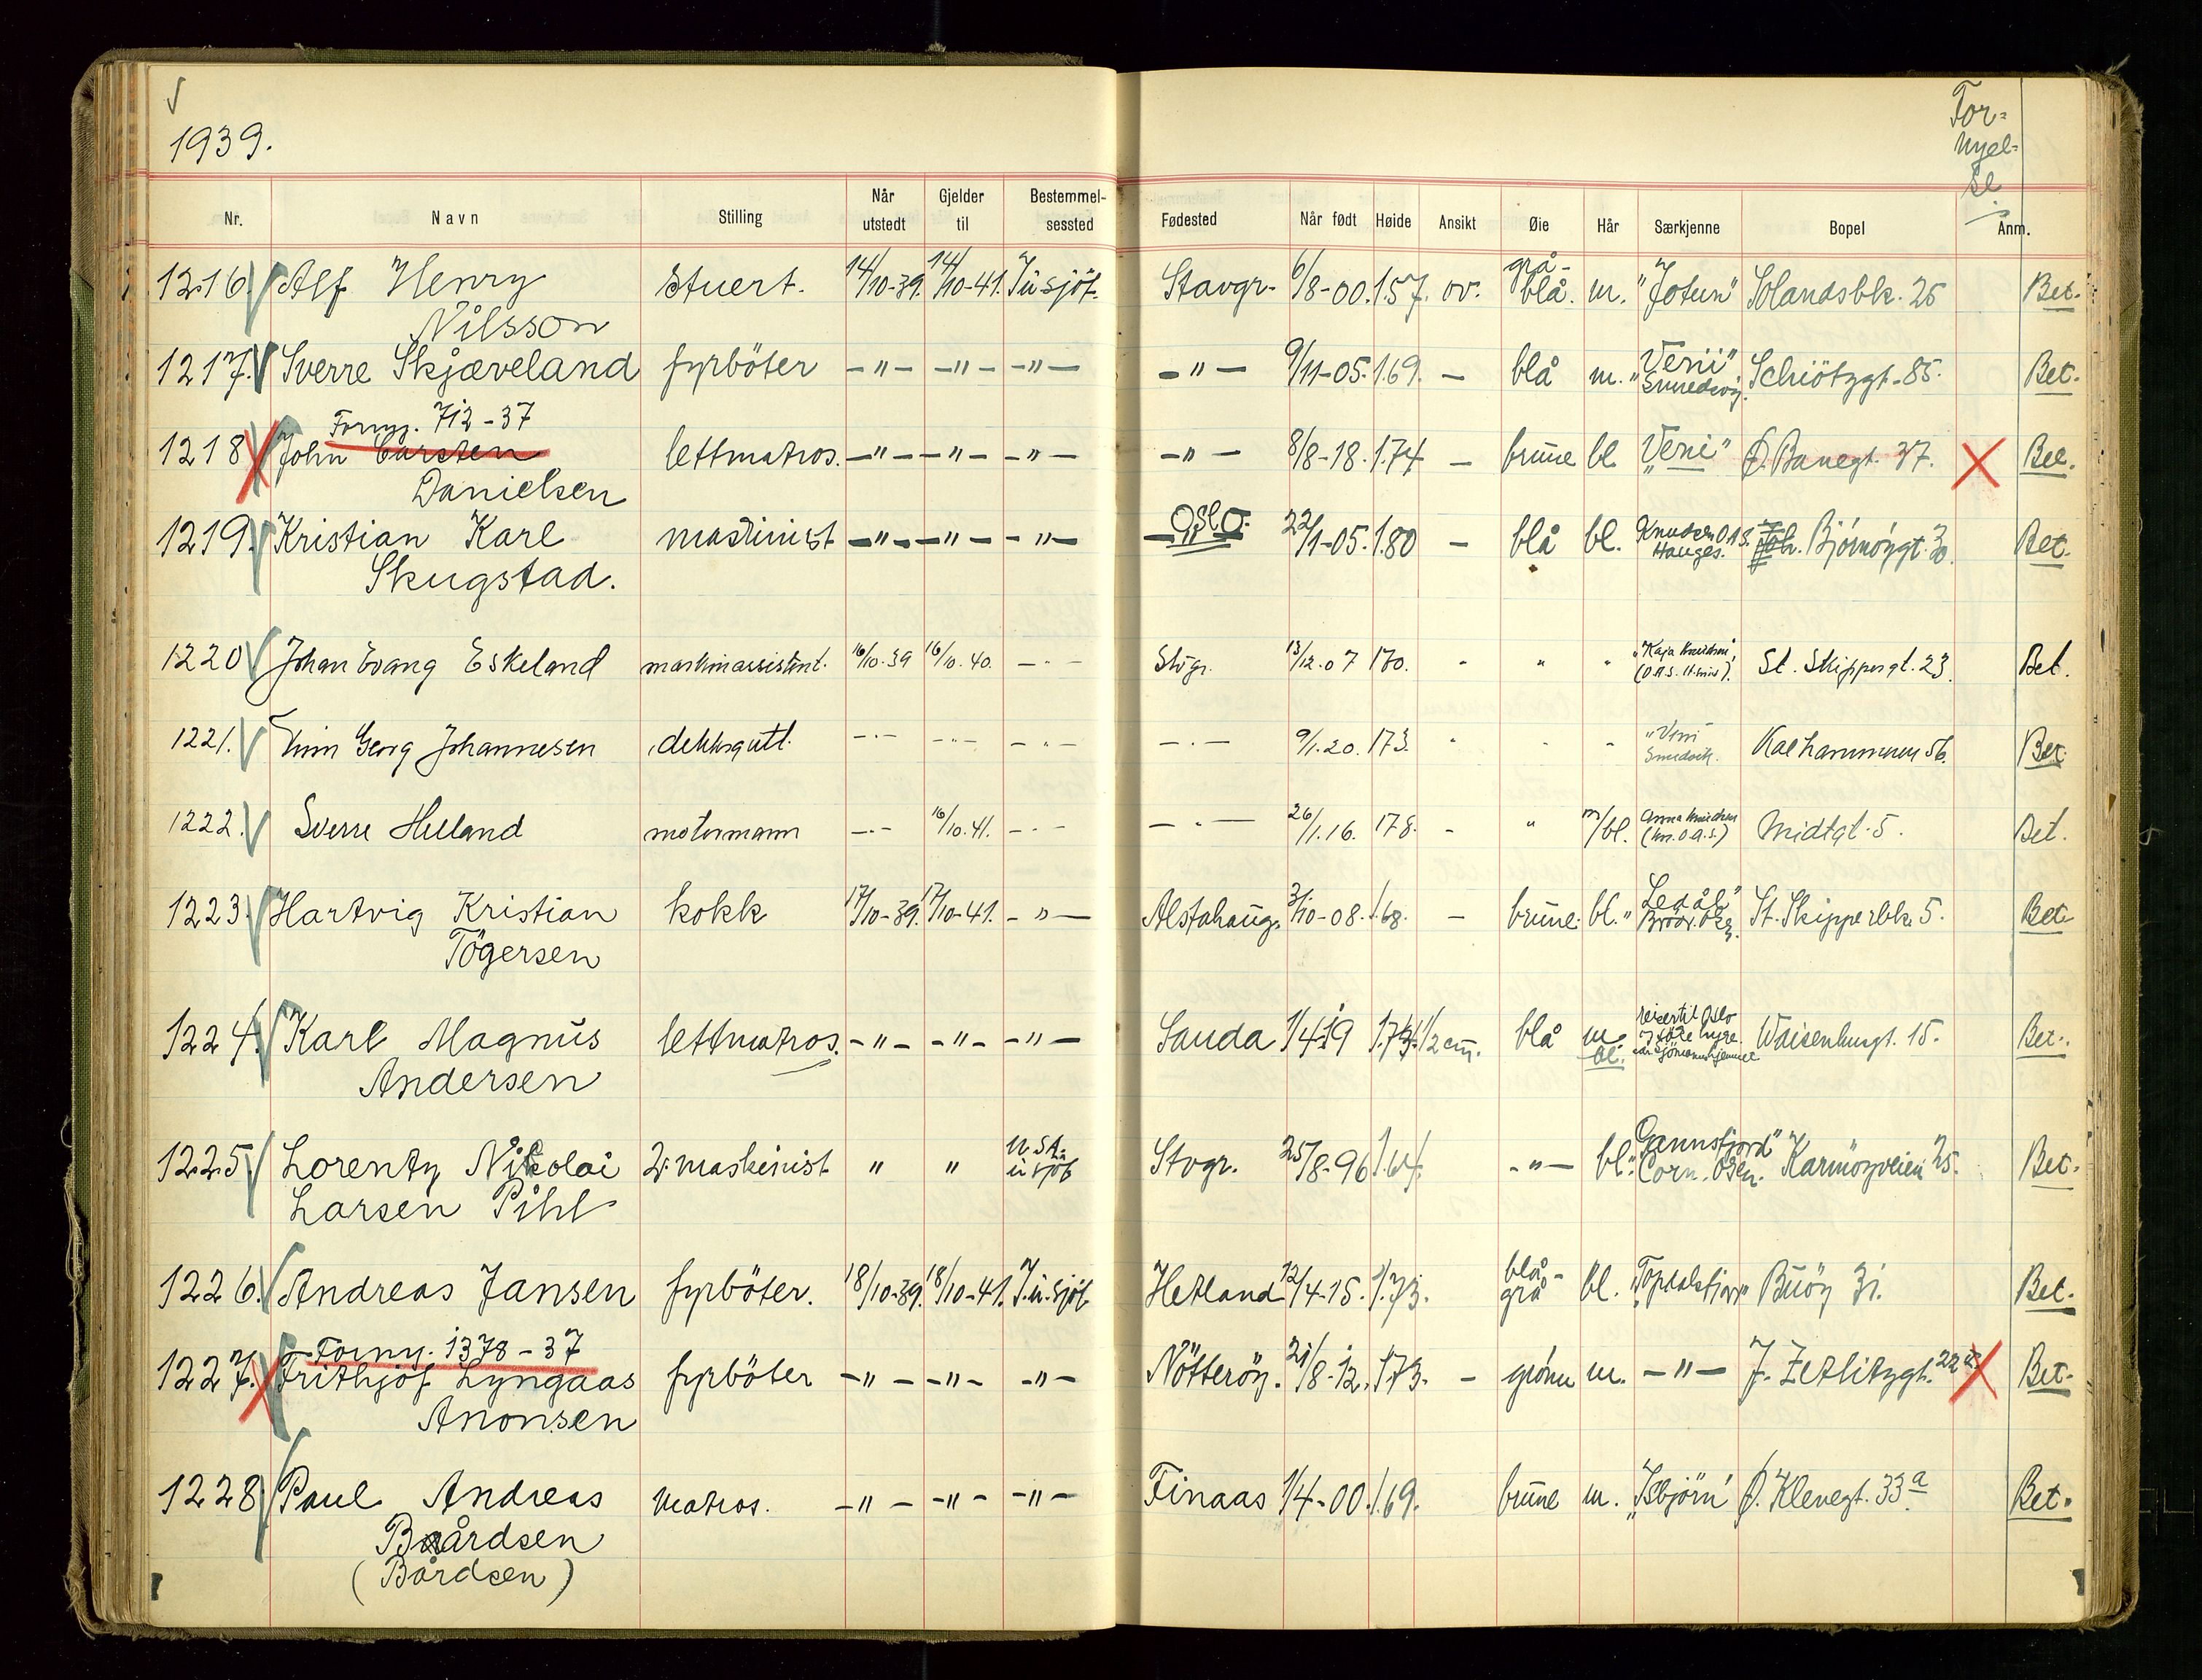 1939.
For=
nyel=
se
Nr. Navn Stilling Når utstedt Gjelder til Bestemmel-sessted Fødested Når født Høide Ansikt Øie Hår Særkjenne Bopel Anm.
1216 Alf Henry Nilsson stuert. 14/10-39. 14/10-41. I u sjöf. Stavgr. 6/8-00. 1.57. ov. grå-blå. m. "Jotun" Solandsbk. 25 Bet.
1217. Sverre Skjæveland fyrböter -"- -"- -"- -"- 9/11-05. 1.69. - blå m. "Veni" Smedvig. Schiötzgt. 85. Bet.
Forny. 712-37
1218 John Carsten Danielsen lettmatros. -"- -"- -"- -"- 8/8-18. 1.74 - brune bl. "Veni" Ø. Banegt. 37. Bet.
1219. Kristian Karl Skugstad. maskinist -"- -"- -"- Oslo. 22/1-05. 1.80 - blå bl. Knudsen O.A.S. Hauges. Bjórnóygt. 30. Bet.
1220 Johan Evang Eskeland maskinassistent. 16/10.39 16/10.40. -"- Stvgr. 13/12.07 170. " " " "Kaja Knudsen" St. Skippergt. 23. Bet.
1221. Georg Johannesen dekksgutt. -"- -"- -"- -"- 9/1.20. 173. " " " "Veni" Smedvik. Kalhammeren 56. Bet.
1222. Sverre Helland motormann -"- 16/10.41. -"- -"- 26/1.16. 178. - " m/bl. Anna Knudsen Midtgt. 5. Bet.
1223. Hartvig Kristian Tögersen kokk 17/10-39. 17/10-41. -"- Alstahaug. 3/10-08. 1.68. - brune. bl. St. Skipperbk. 5. Bet.
1224. Karl Magnus Andersen lettmatros. -"- -"- -"- Sauda 1/4-19 1/2 cm. blå m. bl. reiser til Oslo Waisenhusgt. 15. Bet.
1225 Lorentz Nikolai Larsen Pihl 2. maskinist " " Stvgr. 25/8-96 1.64. -"- bl. "Gannsfjord" Corn. Olsen. Karmöyveien 25. Bet.
1226. Andreas Jansen fyrböter. 18/10-39. 18/10-41. I. u. sjöf. Hetland 12/4-15. 1.73. blå-grå bl. "Topdalsfjord" Buöy 31. Bet.
Forny. 1378-37
1227. Frithjof Lyngaas Anonsen fyrböter -"- -"- -"- Nötteröy. 21/8-12. 1.73. - grónn m. -"- J. Zetlitzgt. 22 Bet.
1228 Paul Andreas Bårdsen (Bårdsen) matros. -"- -"- -"- Finaas 1/4-00. 1.69. brune m. "Isbjörn" Ø. Klevegt. 33a Bet.